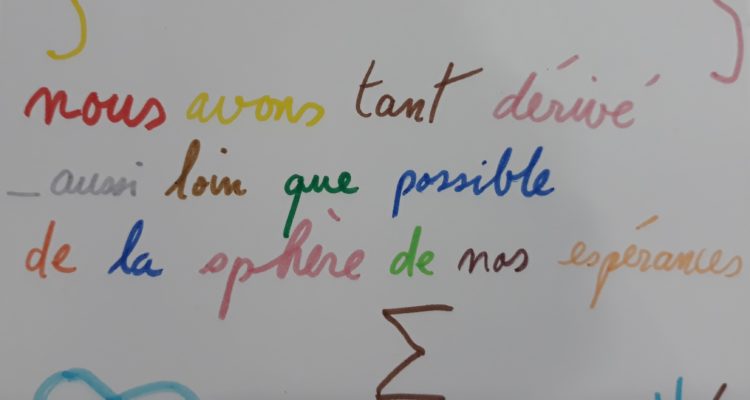 nous avons tant dérivé
_ aussi loin que possible
de la sphère de nos espérances
Σ